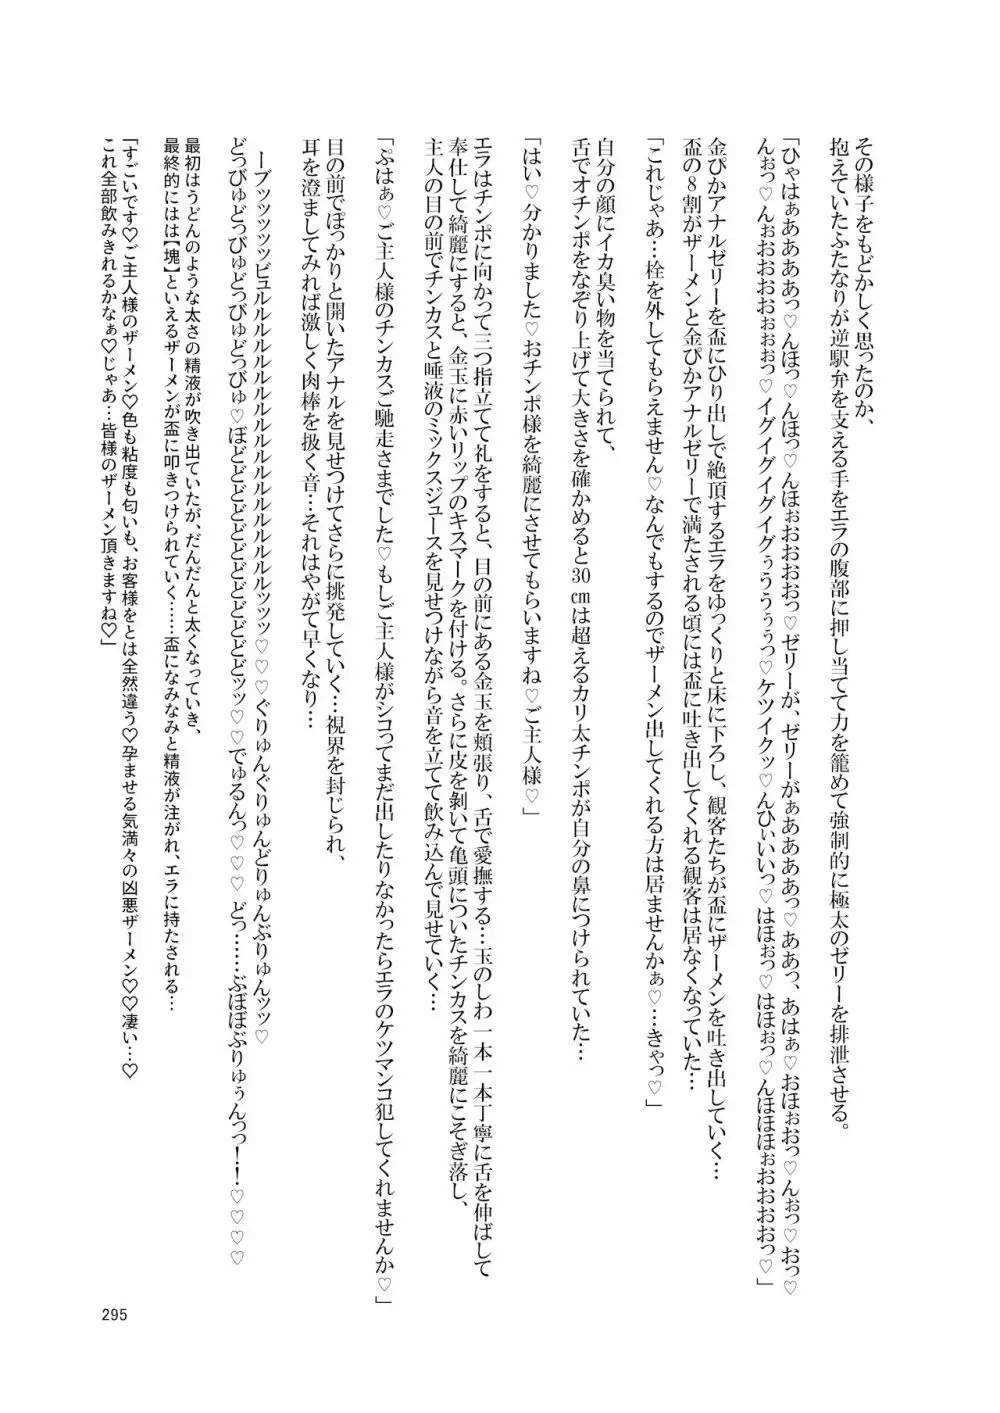 その様子をもどかしく思ったのか、
抱えていたふたなりが逆駅弁を支える手をエラの腹部に押し当てて力を籠めて強制的に極太のゼリーを排泄させる。
「ひゃはぁああああっ♡んほっ♡んほっ♡んほぉおおおおっ♡ゼリーが、ゼリーがぁああああっ♡ああっ、あはぁ♡おほぉおっ♡んぉっ♡おっ♡
んぉっ♡んぉおおおおぉぉぉっ♡イグイグイグイグぅうううぅぅっ♡ケツイクッ♡んひぃいいっ♡はほぉっ♡はほぉっ♡んほほほぉおおおおっ♡」
金ぴかアナルゼリーを盃にひり出しで絶頂するエラをゆっくりと床に下ろし、観客たちが盃にザーメンを吐き出していく…
盃の8割がザーメンと金ぴかアナルゼリーで満たされる頃には盃に吐き出してくれる観客は居なくなっていた…
「これじゃあ…栓を外してもらえません♡なんでもするのでザーメン出してくれる方は居ませんかぁ♡…きゃっ♡」
自分の顔にイカ臭い物を当てられて、
舌でオチンポをなぞり上げて大きさを確かめると30㎝は超えるカリ太チンポが自分の鼻につけられていた…
「はい♡分かりました♡おチンポ様を綺麗にさせてもらいますね♡ご主人様♡」
エラはチンポに向かって三つ指立てて礼をすると、目の前にある金玉を頬張り、舌で愛撫する…玉のしわ一本一本丁寧に舌を伸ばして
奉仕して綺麗にすると、金玉に赤いリップのキスマークを付ける。さらに皮を剝いて亀頭についたチンカスを綺麗にこそぎ落し、
主人の目の前でチンカスと唾液のミックスジュースを見せつけながら音を立てて飲み込んで見せていく…
「ぷはぁ♡ご主人様のチンカスご馳走さまでした♡もしご主人様がシコってまだ出したりなかったらエラのケツマンコ犯してくれませんか♡」
目の前でぽっかりと開いたアナルを見せつけてさらに挑発していく…視界を封じられ、
耳を澄ましてみれば激しく肉棒を扱く音…それはやがて早くなり…
ーブッツッツッビュルルルルルルルルルルルルルルルルルルッッ♡♡♡ぐりゅんぐりゅんどりゅんぶりゅんッッ♡
どっびゅどっびゅどっびゅどっびゅ♡ぼどどどどどどどどどどどどッッ♡♡でゅるんっ♡♡♡どっ……ぶぼぼぶりゅぅんっっ！！♡♡♡♡
最初はうどんのような太さの精液が吹き出ていたが、だんだんと太くなっていき、
最終的にはは【塊】といえるザーメンが盃に叩きつけられていく……盃になみなみと精液が注がれ、エラに持たされる…
「すごいです♡ご主人様のザーメン♡色も粘度も匂いも、お客様をとは全然違う♡孕ませる気満々の凶悪ザーメン♡♡凄い…♡
これ全部飲みきれるかなぁ♡じゃあ…皆様のザーメン頂きますね♡」
295